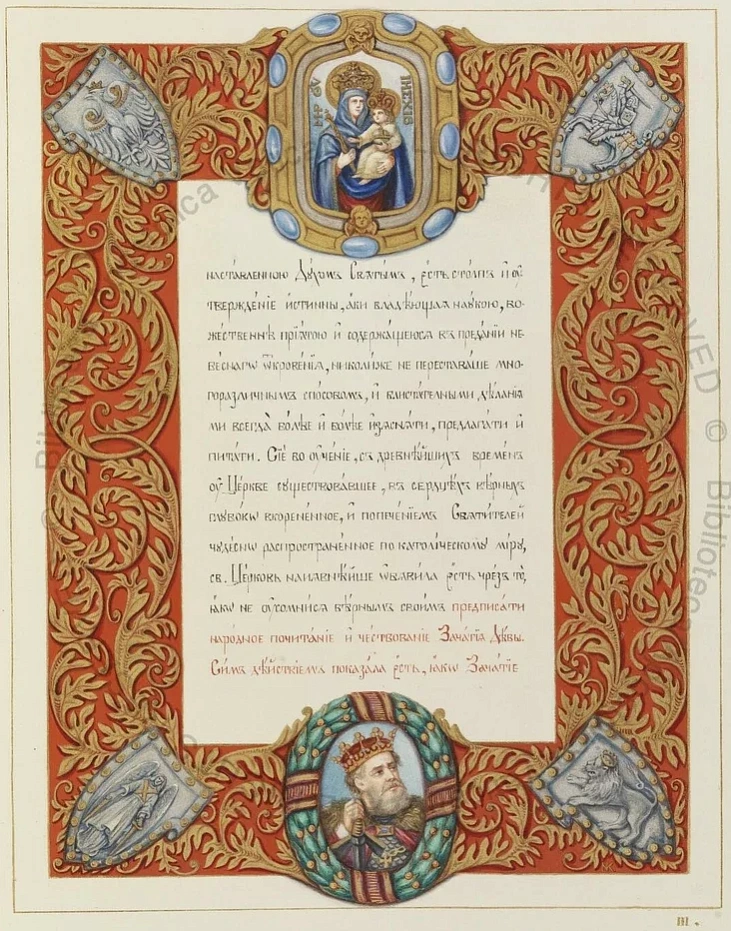 МР ѲУ
ІИС ХІС
наста́вленною Дꙋ́хомъ Святы́мъ, є҆́сть сто́лпъ и҆ ᲂу҆-
твержде́нїе и҆́стинны, а҆́би владѣ́ющая наꙋ́кою, бо-
же́ственнѣ прїѧ́тою и҆ содержа́щеюсѧ въ преда́нїи не-
бе́снагѡ ѿкрове́нїѧ, николи́же не перестава́ше мно-
горазли́чнымъ спо́собомъ, и҆ блиста́тельными дѣѧ́нїѧ-
ми всегда̀ бо́лѣе и҆ бо́лѣе и҆з̾ѧснѧ́ти, предлага́ти и҆
пита́ти. Сїе́ бо ᲂу҆че́нїе, съ древнѣ́йшихъ време́нъ
ᲂу҆ Це́ркве сꙋществова́вшее, въ се́рдцѣхъ вѣ́рныхъ
глꙋбо́кѡ вкорене́нное, и҆ попече́нїемъ Святи́телей
чꙋде́снѡ распростране́нное по католи́ческомꙋ мі́рꙋ,
св. Це́рковь наиѧвнѣ́йше ѡ҆б̾ѧви́ла є҆́сть чрез̾ то̀,
ꙗ҆́кѡ не ᲂу҆сомни́сѧ вѣ́рнымъ свои̑мъ предписа́ти
наро́дное почита́нїе и҆ че́ствованїе Зача́тїѧ Дѣ́вы.
Си́мъ дѣ́йствїемъ показа́ла є҆́сть, ꙗ҆́кѡ Зача́тїе
III.